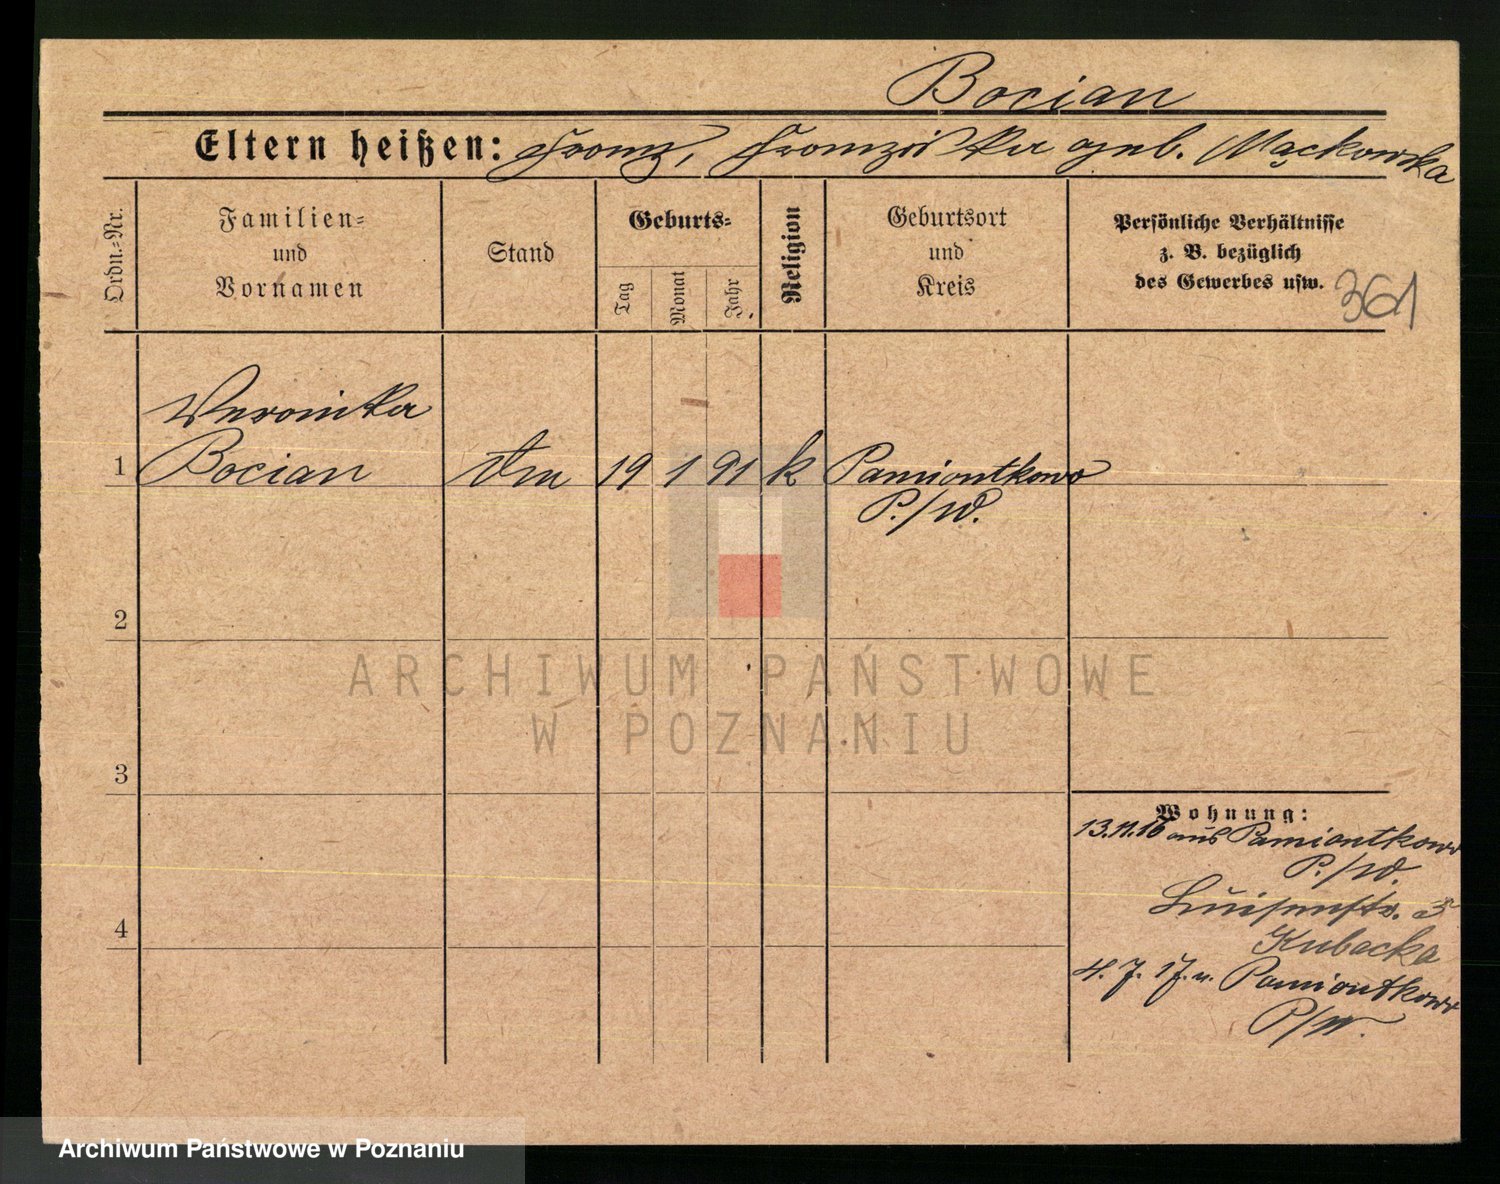 Bocian
Eltern heißen: Franz, Franziska geb. Mąckowska
Ordn.=Nr.
Familien=
und
Vornamen
Stand
Geburts=
Tag
Monat
Jahr
Religion
Geburtsort
und
Kreis
Persönliche Verhältnisse
z. B. bezüglich
des Gewerbes usw.
361
Veronika
1 Bocian 19 1 91 k Pamiontkowo
P./W.
2
3
4
Wohnung:
13.11.16 aus Pamiontkowo
P./W.
Luisenstr. 3
Kubacka
4. 7. 17. n. Pamiontkowo
P/W.
ARCHIWUM PAŃSTWOWE
W POZNANIU
Archiwum Państwowe w Poznaniu